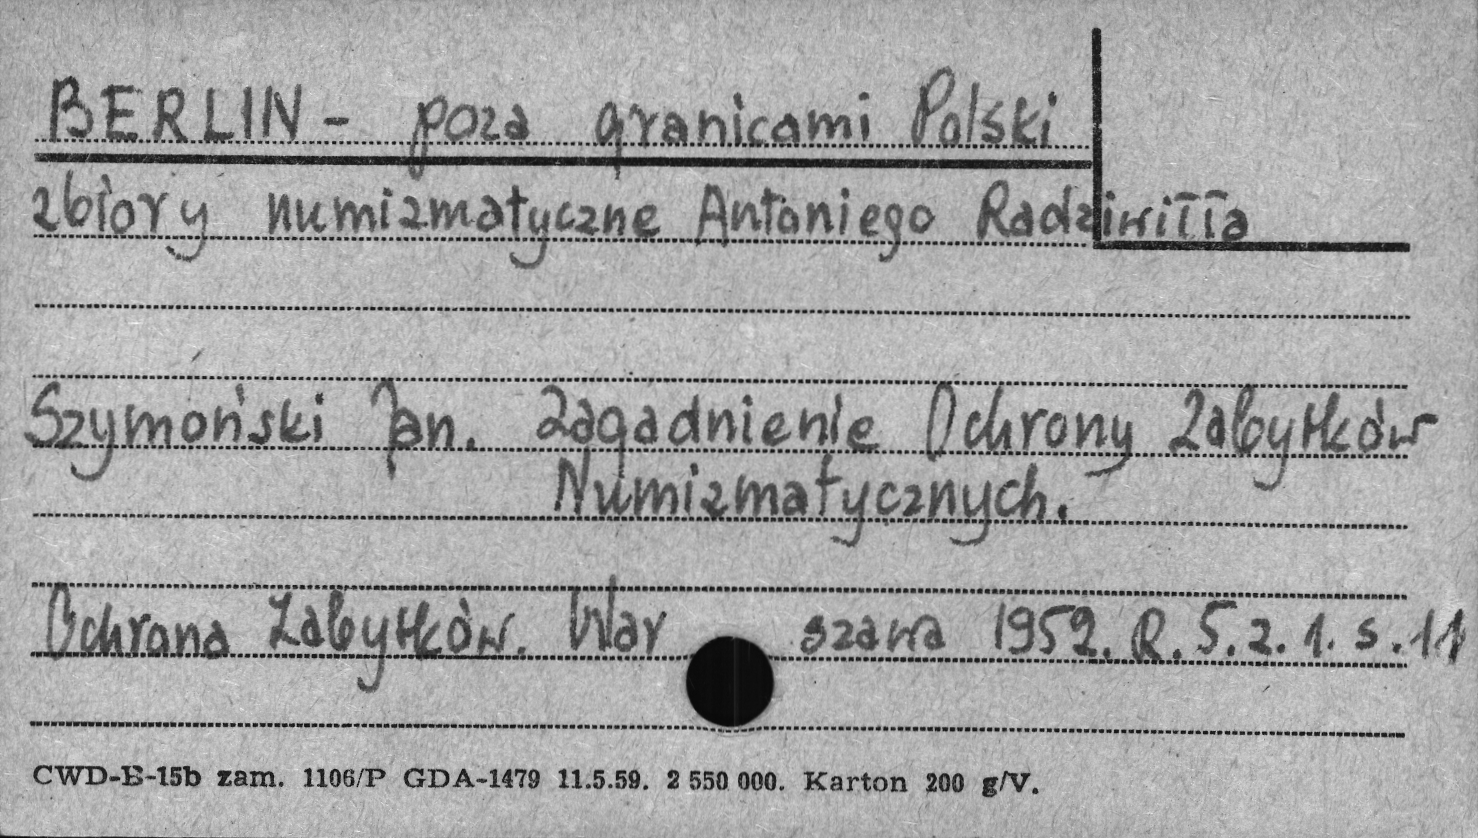 BERLIN - poza granicami Polski
zbiory numizmatyczne Antoniego Radziwiłła
Szymoński Jan. Zagadnienie Ochrony Zabytków
Numizmatycznych.
Ochrona Zabytków. War szawa 1952. R. 5. z. 1. s. 11
CWD-E-15b zam. 1106/P GDA-1479 11.5.59. 2 550 000. Karton 200 g/V.